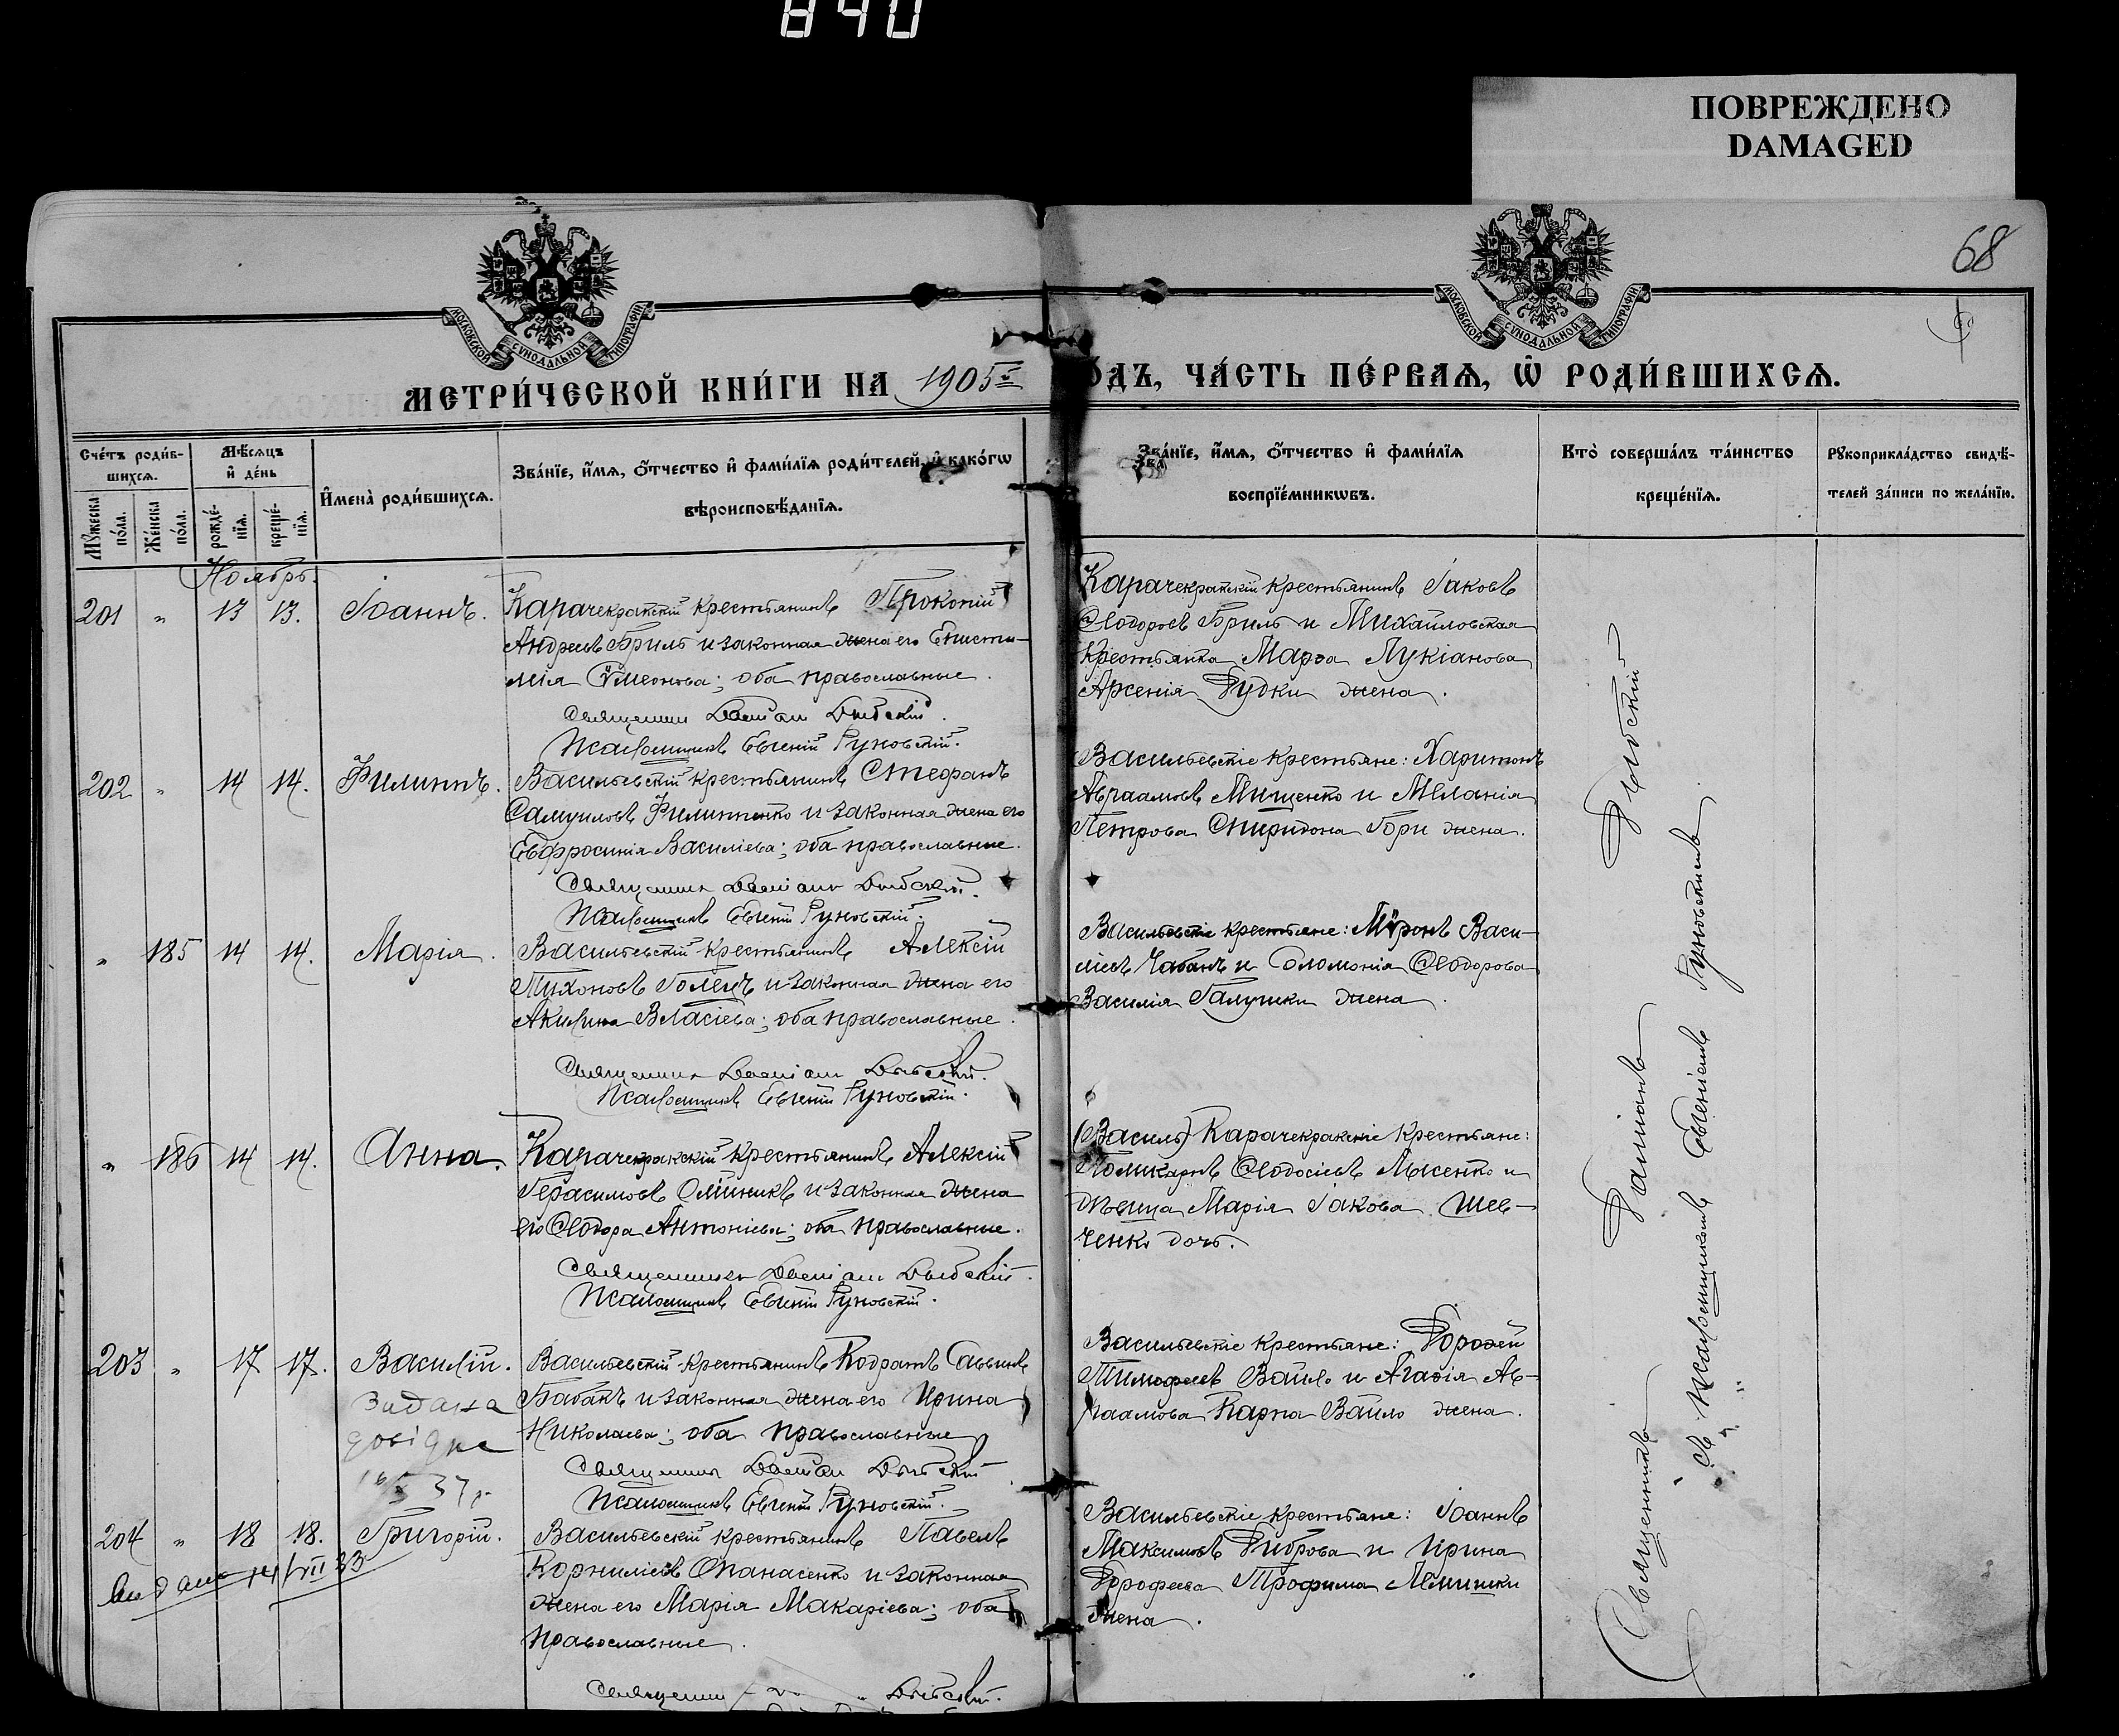 840
ПОВРЕЖДЕНО
DAMAGED
68
МОСКОВСКОЙ СѴНОДАЛЬНОЙ ТИПОГРАФІИ
МОСКОВСКОЙ СѴНОДАЛЬНОЙ ТИПОГРАФІИ
МЕТРИ́ЧЕСКОЙ КНИ́ГИ НА 1905й
О́ДЪ, ЧА́СТЬ ПЕ́РВАѦ, Ѡ҆ РОДИ́ВШИХСѦ.
Сче́тъ роди́в-
шихсѧ.
Мꙋ́жеска по́ла.
Же́нска по́ла.
Мѣ́сѧцъ и҆ де́нь
рожде́-нїѧ.
креще́-нїѧ.
И҆мена̀ роди́вшихсѧ.
Зва́нїе, и҆́мѧ, ѻ҆́тчество и҆ фами́лїѧ роди́телей, и҆ како́гѡ
вѣроисповѣ́данїѧ.
Зва́нїе, и҆́мѧ, ѻ҆́тчество и҆ фами́лїѧ
воспрїе́мникѡвъ.
Кто̀ соверша́лъ та́инство
креще́нїѧ.
Рꙋкоприкла́дство свидѣ́-
телей за́писи по жела́нїю.
Ноябрь.
201 " 13 13. Іоаннъ.
Карачекракскій крестьянинъ Прокопій
Андреевъ Бриль и законная жена его Еписти-
мія Сѵмеонова; оба православные.
Священникъ Даміан
Псаломщикъ Евгеній Руновскій.
Карачекракскій крестьянинъ Іаковъ
Ѳеодоровъ Бриль и Михайловская
крестьянка Марѳа Лукіанова
Арсенія Дудки жена.
202 " 14 14. Филиппъ.
Васильевскій крестьянинъ Стефанъ
Самуиловъ Филиппенко и законная жена его
Евфросинія Василіева; оба православные.
Священник Даміанъ
Псаломщикъ Евгеній Руновскій.
Васильевскіе крестьяне: Харитонъ
Авраамовъ Мищенко и Меланія
Петрова Спиридона Гори жена.
" 185 14 14. Марія.
Васильевскій крестьянинъ Алексій
Тихоновъ Голецъ и законная жена его
Акилина Власіева; оба православные.
Священник Даміан
Псаломщикъ Евгеній Руновскій.
Васильевскіе крестьяне: Мѵронъ Васи-
ліевъ Чабанъ и Соломонія Ѳеодорова
Василія Галушки жена.
" 186 14 14. Анна.
Карачекракскій крестьянинъ Алексій
Герасимовъ Олѣйникъ и законная жена
его Ѳеодора Антоніева; оба православные.
Священникъ Даміан
Псаломщикъ Евгеній Руновскій.
(Василь) Карачекракскіе крестьяне:
Поликарпъ Ѳеодосіевъ Лысенко и
дѣвица Марія Іакова Шев-
ченко дочь.
203 " 17 17. Василій.
Видана
довідка
16/5 37 р.
Васильевскій крестьянинъ Кодратъ Саввинъ
Бабакъ и законная жена его Ирина
Николаева; оба православные
Священник Даміан
Псаломщикъ Евгеній Руновскій.
Васильевскіе крестьяне: Дороѳей
Тимофеевъ Вайло и Агаѳія Ав-
раамова Карпа Вайло жена.
204 " 18 18. Григорій.
Видано 14/VII 33
Васильевскій крестьянинъ Павелъ
Корниліевъ Опанасенко и законная
жена его Марія Макаріева; оба
православные.
Священник
Васильевскіе крестьяне: Іоаннъ
Максимовъ Диброва и Ирина
Дорофеева Трофима жена.
Священникъ Даміанъ
съ Псаломщикомъ Евгеніемъ Руновскимъ